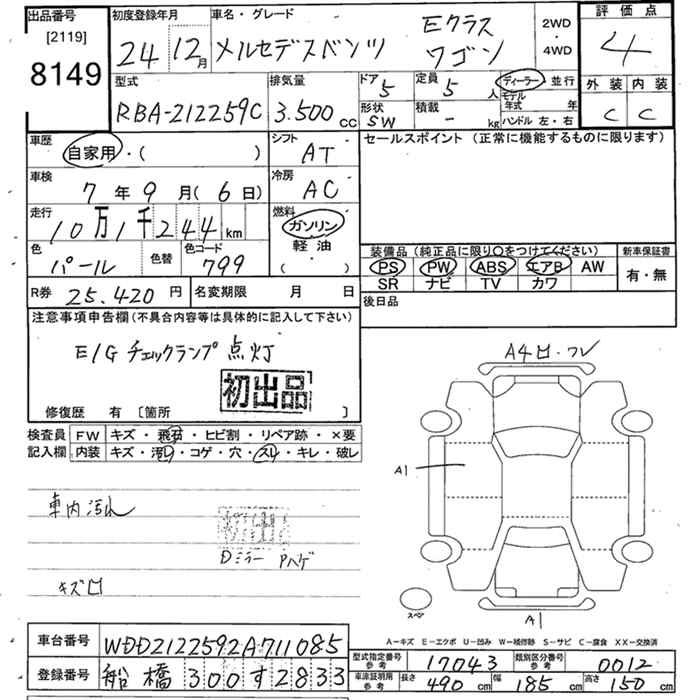 出品番号
[2119]
8149
初度登録年月
24 12月
車名・グレード
メルセデスベンツ
Eクラス
ワゴン
2WD
・
4WD
評価点
4
型式
RBA-212259C
排気量
3.500cc
ドア
5
定員
5人
形状
SW
積載
- kg
ディーラー 並行
モデル
年式 年
ハンドル 左・右
外装 内装
C C
車歴
自家用・( )
シフト
AT
セールスポイント (正常に機能するものに限ります)
車検
7年9月(6日)
冷房
AC
走行
10万1千244km
燃料
ガソリン
軽油
( ・ )
色
パール
色替
色コード
799
装備品 (純正品に限り○をつけてください)
新車保証書
PS PW ABS エアB AW
有・無
SR ナビ TV カワ
R券 25.420円
名変期限 月 日
後日品
注意事項申告欄(不具合内容等は具体的に記入して下さい)
E/G チェックランプ点灯
初出品
修復歴 有 〔箇所 〕
検査員 FW キズ・飛石・ヒビ割・リペア跡・×要
記入欄 内装 キズ・汚れ・コゲ・穴・スレ・キレ・破レ
A4
A1
車内汚れ
Dミラー Pハゲ
スペア
A1
A−キズ E−エクボ U−凹み W−補修跡 S−サビ C−腐食 XX−交換済
車台番号 WDD2122592A711085
登録番号 船橋 300 す 2833
型式指定番号
参考
17043
類別区分番号
参考
0012
車庫証明用
参考
長さ 490cm 幅 185cm 高さ 150cm